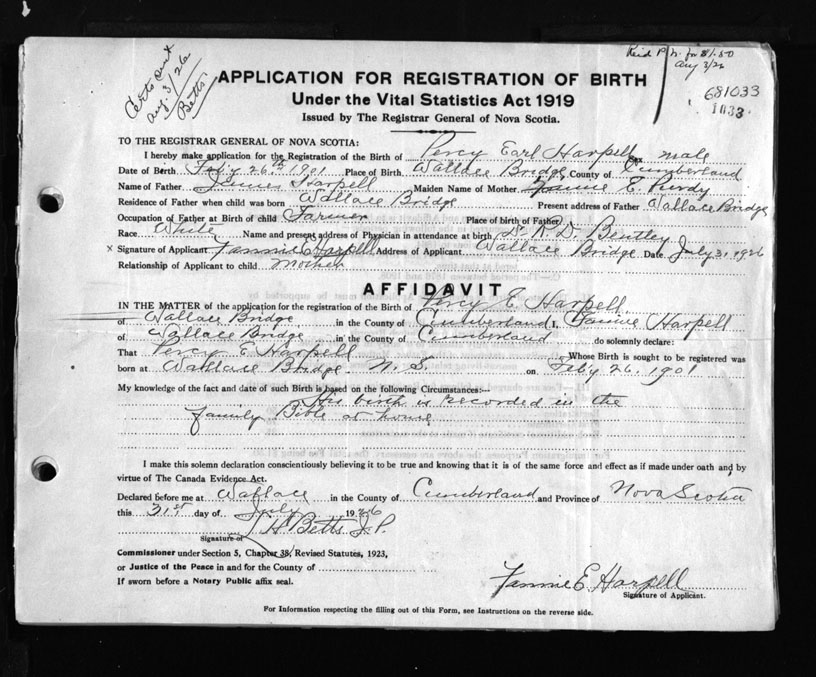 Certs sent
Aug 3/26
Betts
for $1.50
Aug 3/26
681033
1033
APPLICATION FOR REGISTRATION OF BIRTH
Under the Vital Statistics Act 1919
Issued by The Registrar General of Nova Scotia.
TO THE REGISTRAR GENERAL OF NOVA SCOTIA:
I hereby make application for the Registration of the Birth of Percy Earl Harpell Sex male
Date of Birth Feby 26th 1901 Place of Birth Wallace Bridge County of Cumberland
Name of Father James Harpell Maiden Name of Mother Fannie E. Purdy
Residence of Father when child was born Wallace Bridge Present address of Father Wallace Bridge
Occupation of Father at Birth of child Farmer Place of birth of Father
Race White Name and present address of Physician in attendance at birth Dr. A. D. Bentley
x Signature of Applicant Fannie E Harpell Address of Applicant Wallace Bridge Date July 31, 1926
Relationship of Applicant to child Mother
AFFIDAVIT
IN THE MATTER of the application for the registration of the Birth of Percy E Harpell
of Wallace Bridge in the County of Cumberland I, Fannie Harpell
of Wallace Bridge in the County of Cumberland do solemnly declare:
That Percy E Harpell Whose Birth is sought to be registered was
born at Wallace Bridge N. S. on Feby 26. 1901
My knowledge of the fact and date of such Birth is based on the following Circumstances:—
His birth is recorded in the
Family Bible at home
I make this solemn declaration conscientiously believing it to be true and knowing that it is of the same force and effect as if made under oath and by
virtue of The Canada Evidence Act.
Declared before me at Wallace in the County of Cumberland and Province of Nova Scotia
this 31st day of July 1926
H Betts J. P.
Signature of
Commissioner under Section 5, Chapter 38, Revised Statutes, 1923,
or Justice of the Peace in and for the County of
If sworn before a Notary Public affix seal.
Fannie E Harpell
Signature of Applicant.
For Information respecting the filling out of this Form, see Instructions on the reverse side.